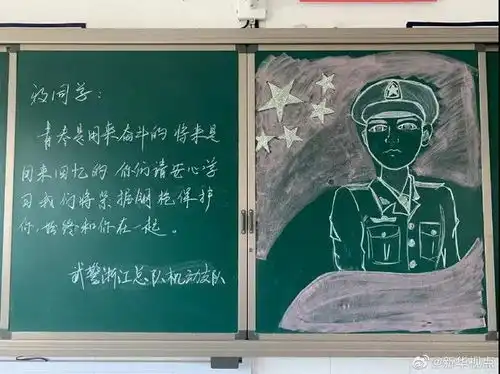 致同学：
青春是用来奋斗的 将来是
用来回忆的 你们请安心学
习我们将紧握钢枪保护
你，始终和你在一起。
武警浙江总队机动支队
@新华视点